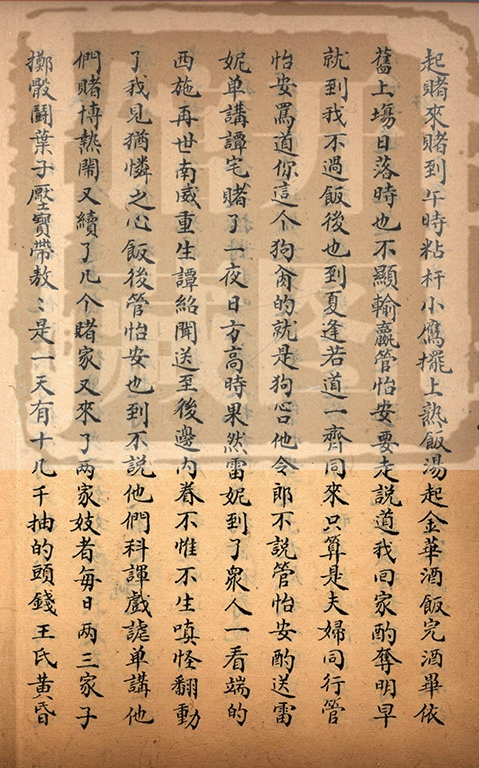 起賭來賭到午時粘杆小鷹擺上熟飯湯起金華酒飯完酒畢依
舊上塲日落時也不顯輸贏管怡安要走說道我回家酌奪明早
就到我不過飯後也到夏逢若道一齊同來只算是夫婦同行管
怡安罵道你這个狗肏的就是狗心他令郎不說管怡安酌送雷
妮单講譚宅賭了一夜日方高時果然雷妮到了衆人一看端的
西施再世南威重生譚紹聞送至後邊内眷不惟不生嗔怪翻動
了我見猶憐之心飯後管怡安也到不説他們科諢戲謔单講他
們賭博熱鬧又續了几个賭家又來了两家妓者每日两三家子
擲骰鬪葉子壓寶帶敖〻是一天有十几千抽的頭錢王氏黄昏